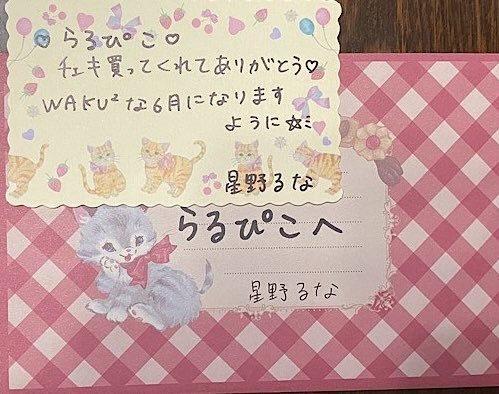 ♡ らるぴこ ♡
チェキ買ってくれてありがとう♡
WAKU²な6月になります
ように☆ミ
星野るな
らるぴこへ
星野るな